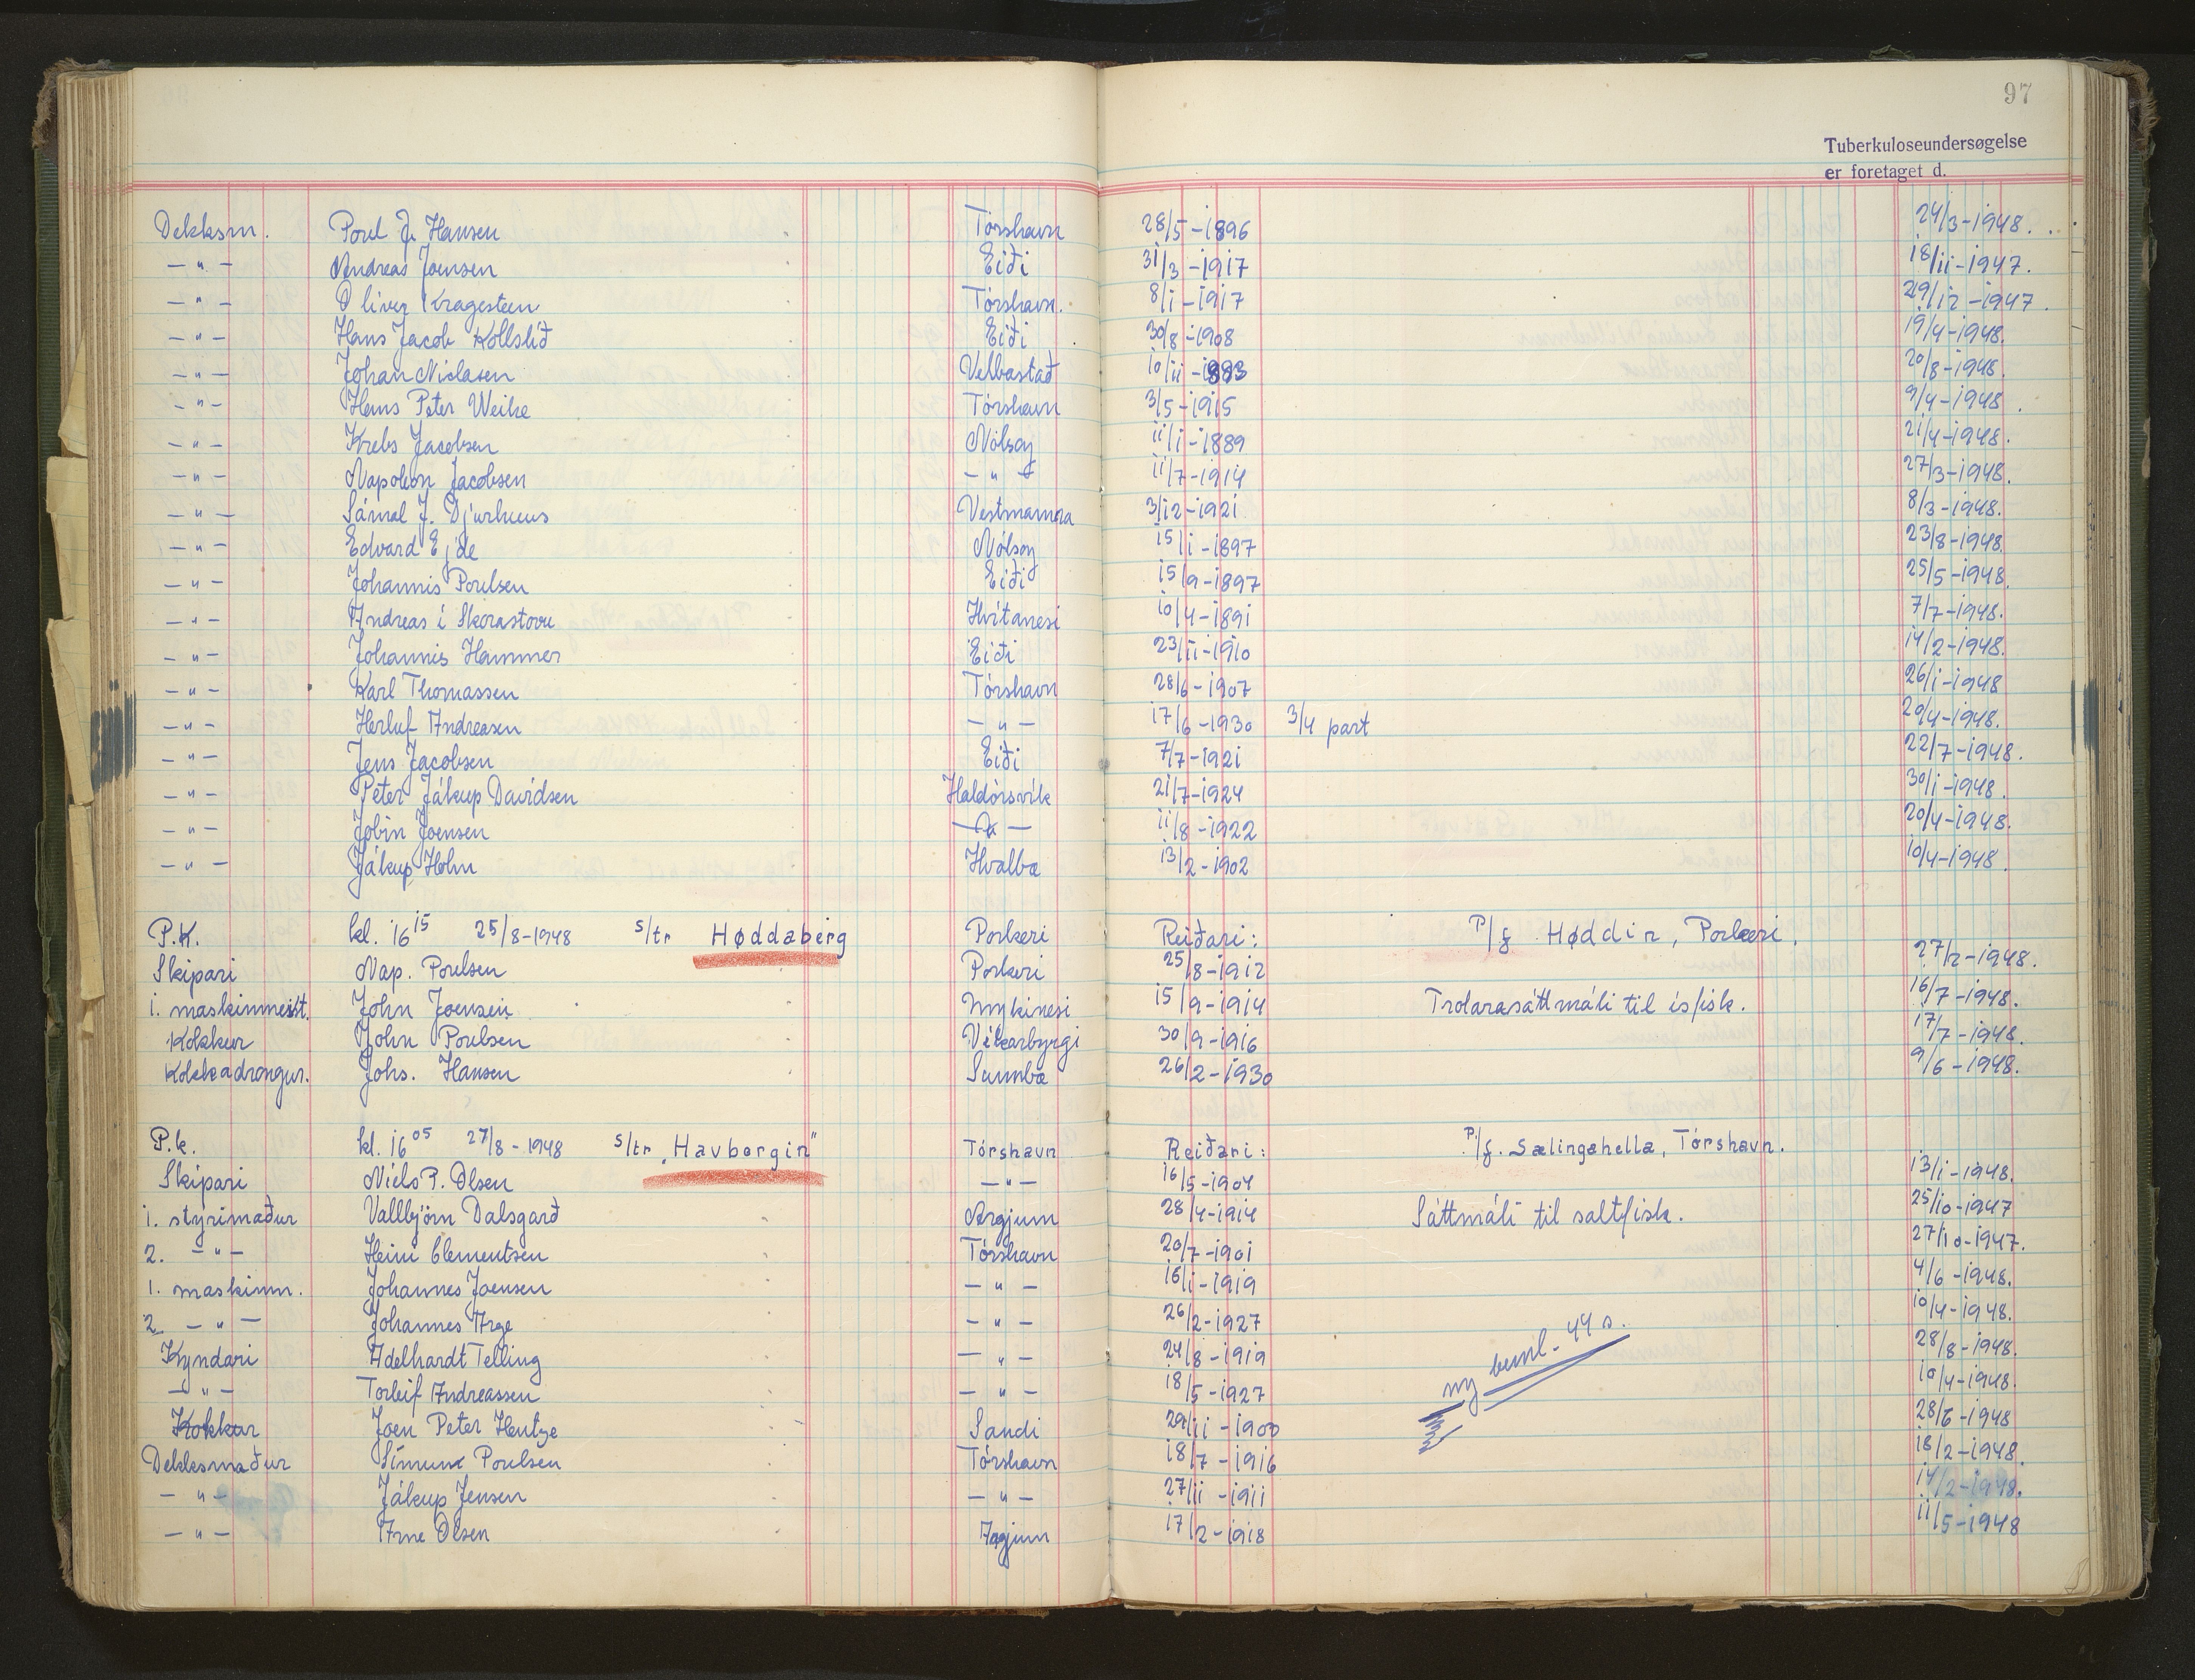 97
Tuberkuloseundersøgelse
er foretaget d.
Dekksm. Poul J. Hansen Tórshavn 28/5-1896 24/3-1948.
-"- Andreas Joensen Eiði 31/3-1917 18/11-1947.
-"- Oliver Kragesteen Tórshavn. 8/1-1917 29/12-1947.
-"- Hans Jacob Kollslíð Eiði 30/8-1908 19/4-1948.
-"- Johan Niclasen Velbastað 10/11-1883 20/8-1948.
-"- Hans Peter Weihe Tórshavn 3/5-1915 9/4-1948.
-"- Krebs Jacobsen Nólsoy 11/1-1889 21/4-1948.
-"- Napoleon Jacobsen -"- 11/7-1914 27/3-1948.
-"- Sámal J. Djurhuus Vestmanna 3/12-1921 8/3-1948.
-"- Edvard Ejde Nólsoy 15/1-1897 23/8-1948.
-"- Johannis Poulsen Eiði 15/9-1897 25/5-1948.
-"- Andreas í Skorastovu Hvítanesi 10/4-1891 7/7-1948.
-"- Johannis Hammer Eiði 23/11-1910 14/2-1948.
-"- Karl Thomassen Tórshavn 28/6-1907 26/1-1948
-"- Herluf Andreasen -"- 17/6-1930 3/4 part 20/4-1948.
-"- Jens Jacobsen Eiði 7/7-1921 22/7-1948.
-"- Peter Jákup Davidsen Haldórsvík 21/7-1924 30/1-1948.
-"- Jóbin Joensen -"- 11/8-1922 20/4-1948.
-"- Jákup Holm Hvalba 13/2-1902 10/4-1948.
P.K. kl. 16 15 25/8-1948 s/tr Høddaberg Porkeri Reiðari: P/f Høddin, Porkeri.
Skipari Nap. Poulsen Porkeri 25/8-1912 27/2-1948.
1. maskinmeist. John Joensen Mykinesi 15/9-1914 Trolarasáttmáli til ísfisk. 16/7-1948.
Kokkur John Poulsen Víkarbyrgi 30/9-1916 17/7-1948.
Kokkadrongur. Johs. Hansen Sumba 26/2-1930 9/6-1948.
P.k. kl. 16 05 27/8-1948 s/tr "Havborgin" Tórshavn Reiðari: P/f. Sælingahella, Tórshavn.
Skipari Niels P. Olsen -"- 16/5-1904 13/1-1948.
1. stýrimaður Vallbjörn Dalsgarð Argjum 28/4-1914 Sáttmáli til saltfisk. 25/10-1947
2. -"- Heini Clementsen Tórshavn 20/7-1901 27/10-1947.
1. maskinm. Johannes Joensen -"- 16/1-1919 4/6-1948.
2. -"- Johannes Arge -"- 26/2-1927 10/4-1948.
Kyndari Adelhardt Telling -"- 24/8-1919 ny beml. 44 s. 28/8-1948.
-"- Torleif Andreassen -"- 18/5-1927 10/4-1948.
Kokkur Joen Peter Hentze Sandi 29/11-1900 28/6-1948
Dekksmaður Símun Poulsen Tórshavn 18/7-1916 18/2-1948.
-"- Jákup Jensen -"- 27/11-1911 14/2-1948.
-"- Arne Olsen Argjum 17/2-1918 11/5-1948